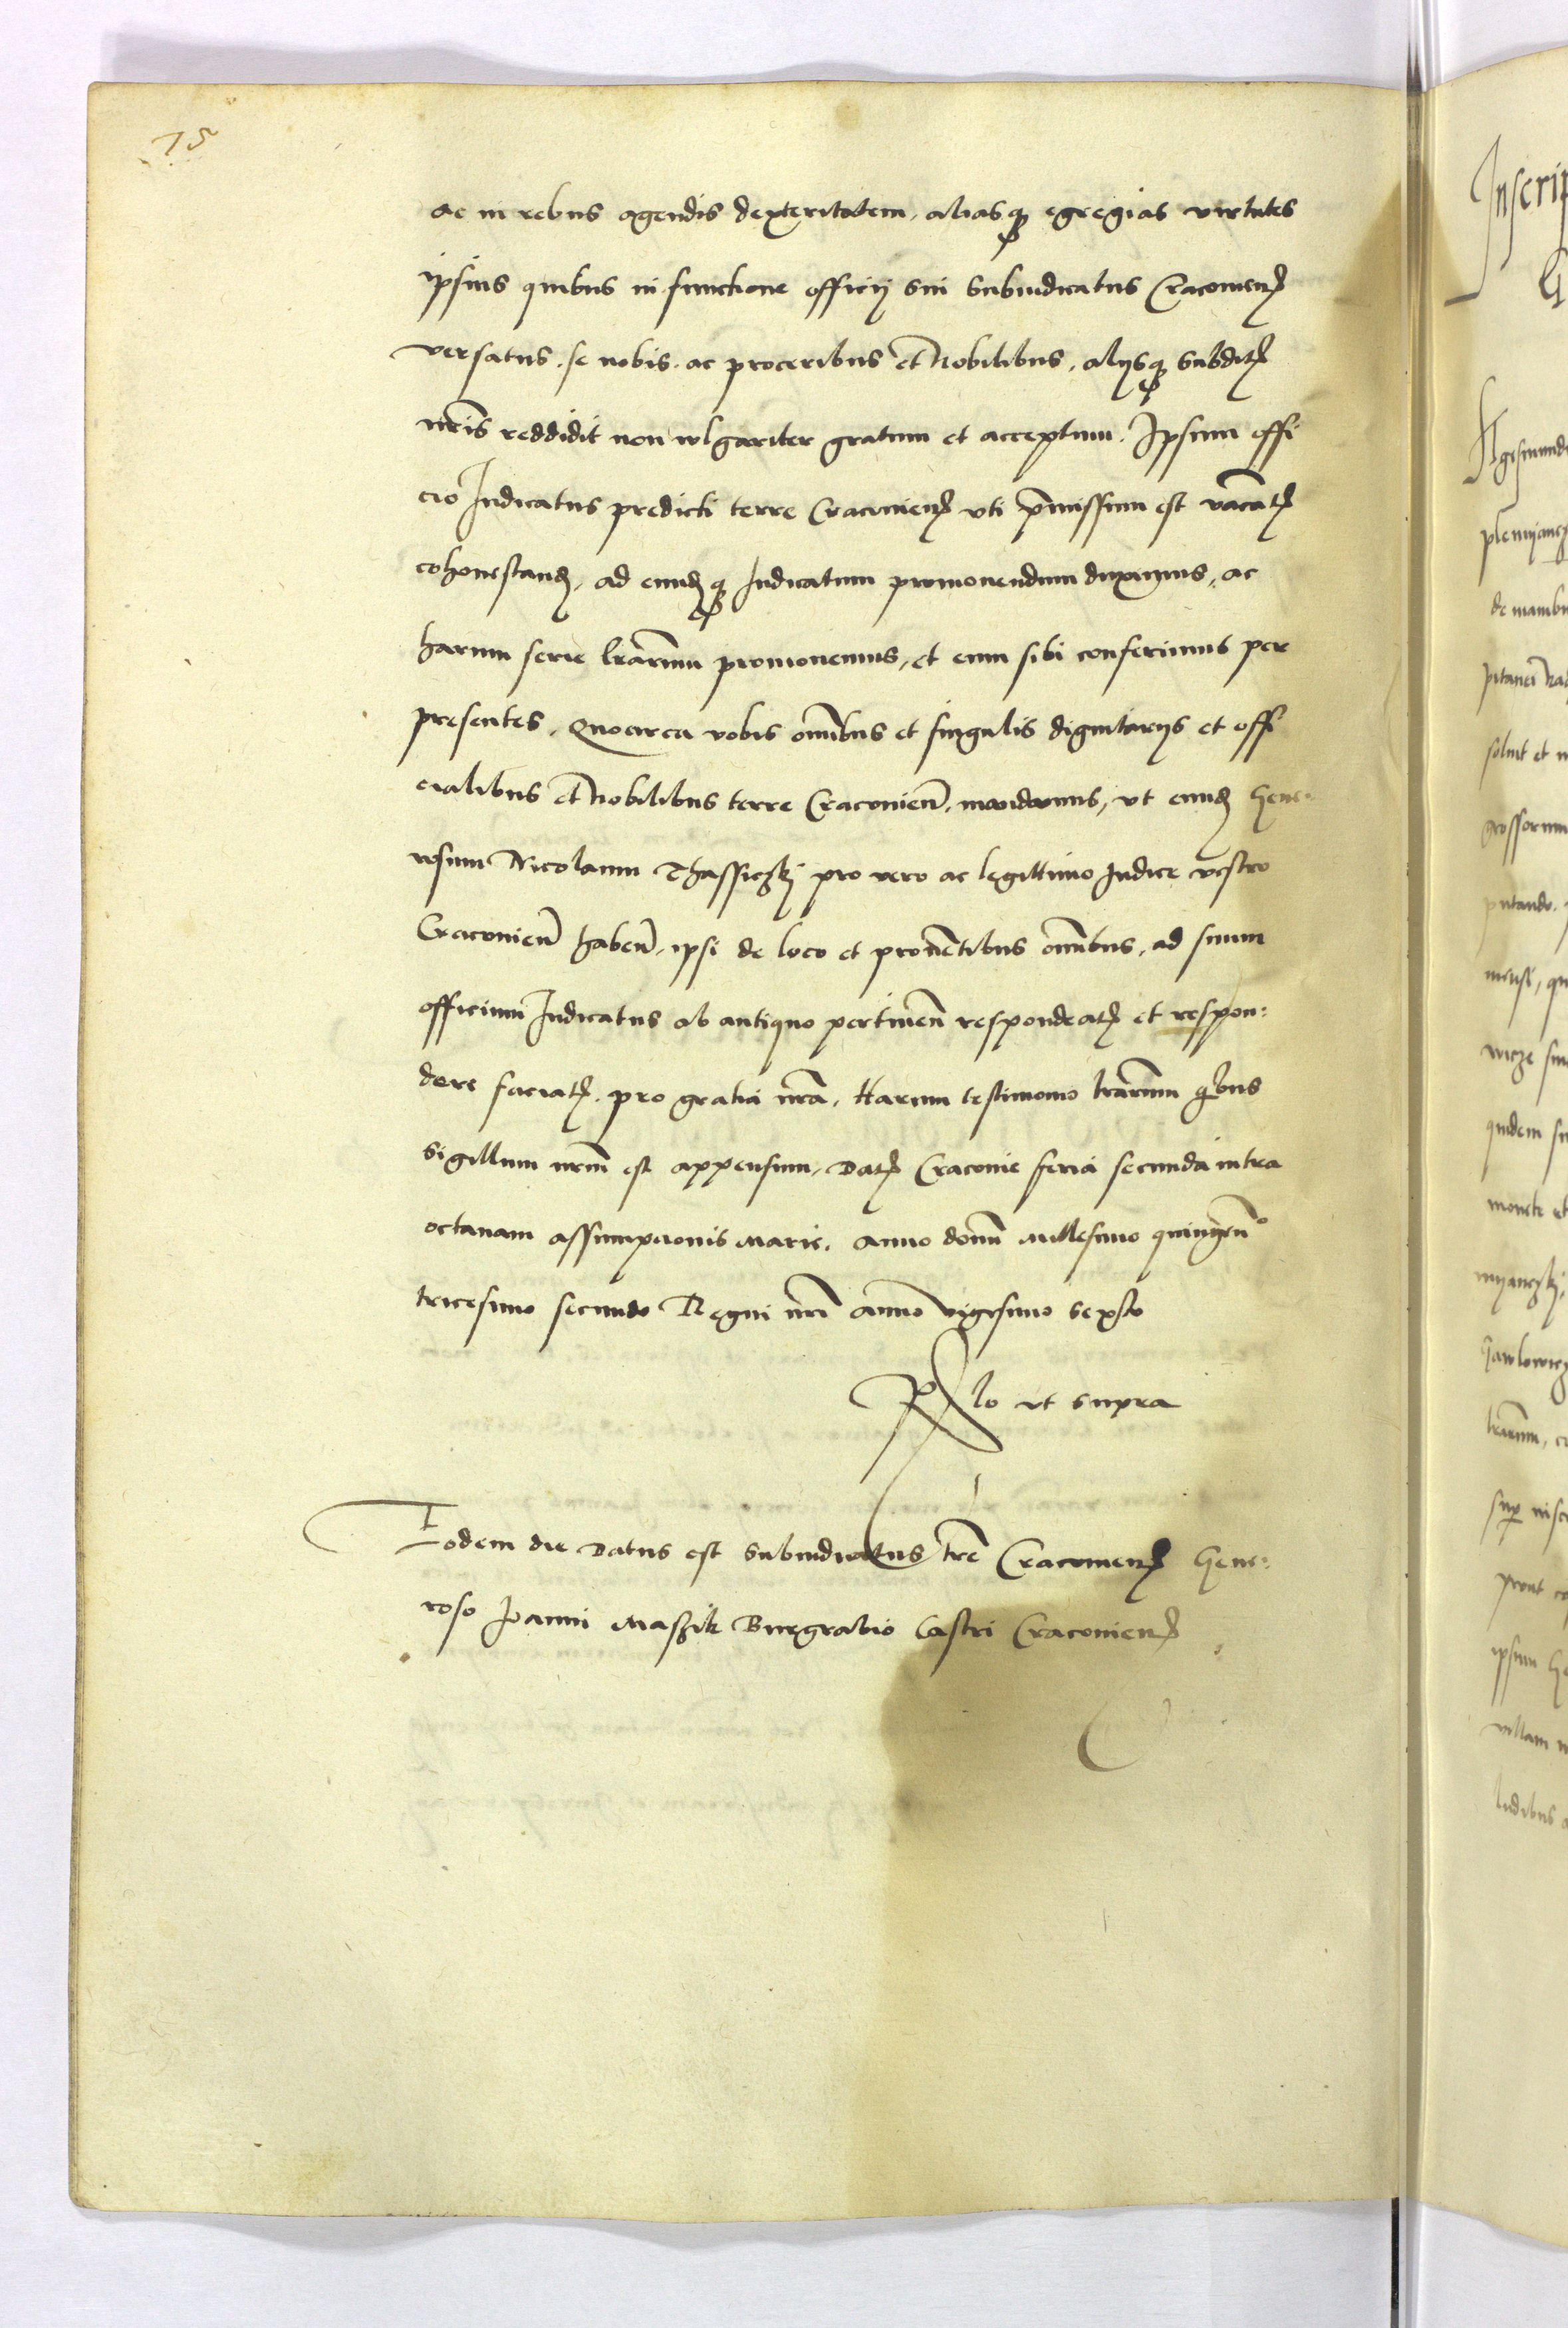 75
ac in rebus agendis dexteritatem, aliasq egregias virtutes
ipsius quibus in functione officij sui Subiudicatus Cracovienꝭ
versatus, se nobis, ac proceribus et Nobilibus, alijsq Subditꝭ
nr̄is reddidit non wlgariter gratum et acceptum. Ipsum offi
cio Iudicatus predicti terre Cracovienꝭ vti p̄missum est vacatꝭ
cohonestanḍ, ad eundꝭq Iudicatum promouendum duximus, ac
harum serie lr̄arum promouemus, et eum sibi conferimus per
presentes, Quocirca vobis om̄ibus et singulis dignitarijs et offi
cialibus et Nobilibus terre Cracovien̄, mandamus, vt eundꝭ Gene-
rosum Nicolaum Thassiczkj pro vero ac legittimo Iudice vestro
Cracovien̄ haben̄, ipsi de loco et prouētibus om̄ibus, ad suum
officium Iudicatus ab antiquo pertinen̄ respondeatꝭ et respon:
dere faciatꝭ, pro gratia nr̄a, Harum testimonio lr̄arum q̄bus
Sigillum nrm̄ est appensum, Datꝭ Cracovie feria secunda intra
octauam assumpcionis Marie, Anno domi̅ Millesimo quingen̄o
tricesimo secundo Regni nr̄i Anno vigesimo sexto
Rlo vt supra
Eodem die Datus est Subiudicatus tr̄e Cracovienꝭ Gene:
roso Ioanni Maszik Burgrabio Castri Cracovienꝭ
Inscrip
G
plemijancz
de manibu
solut et
grossorum
putando
mensi, qu
quidem su
ipsum Ge
villam